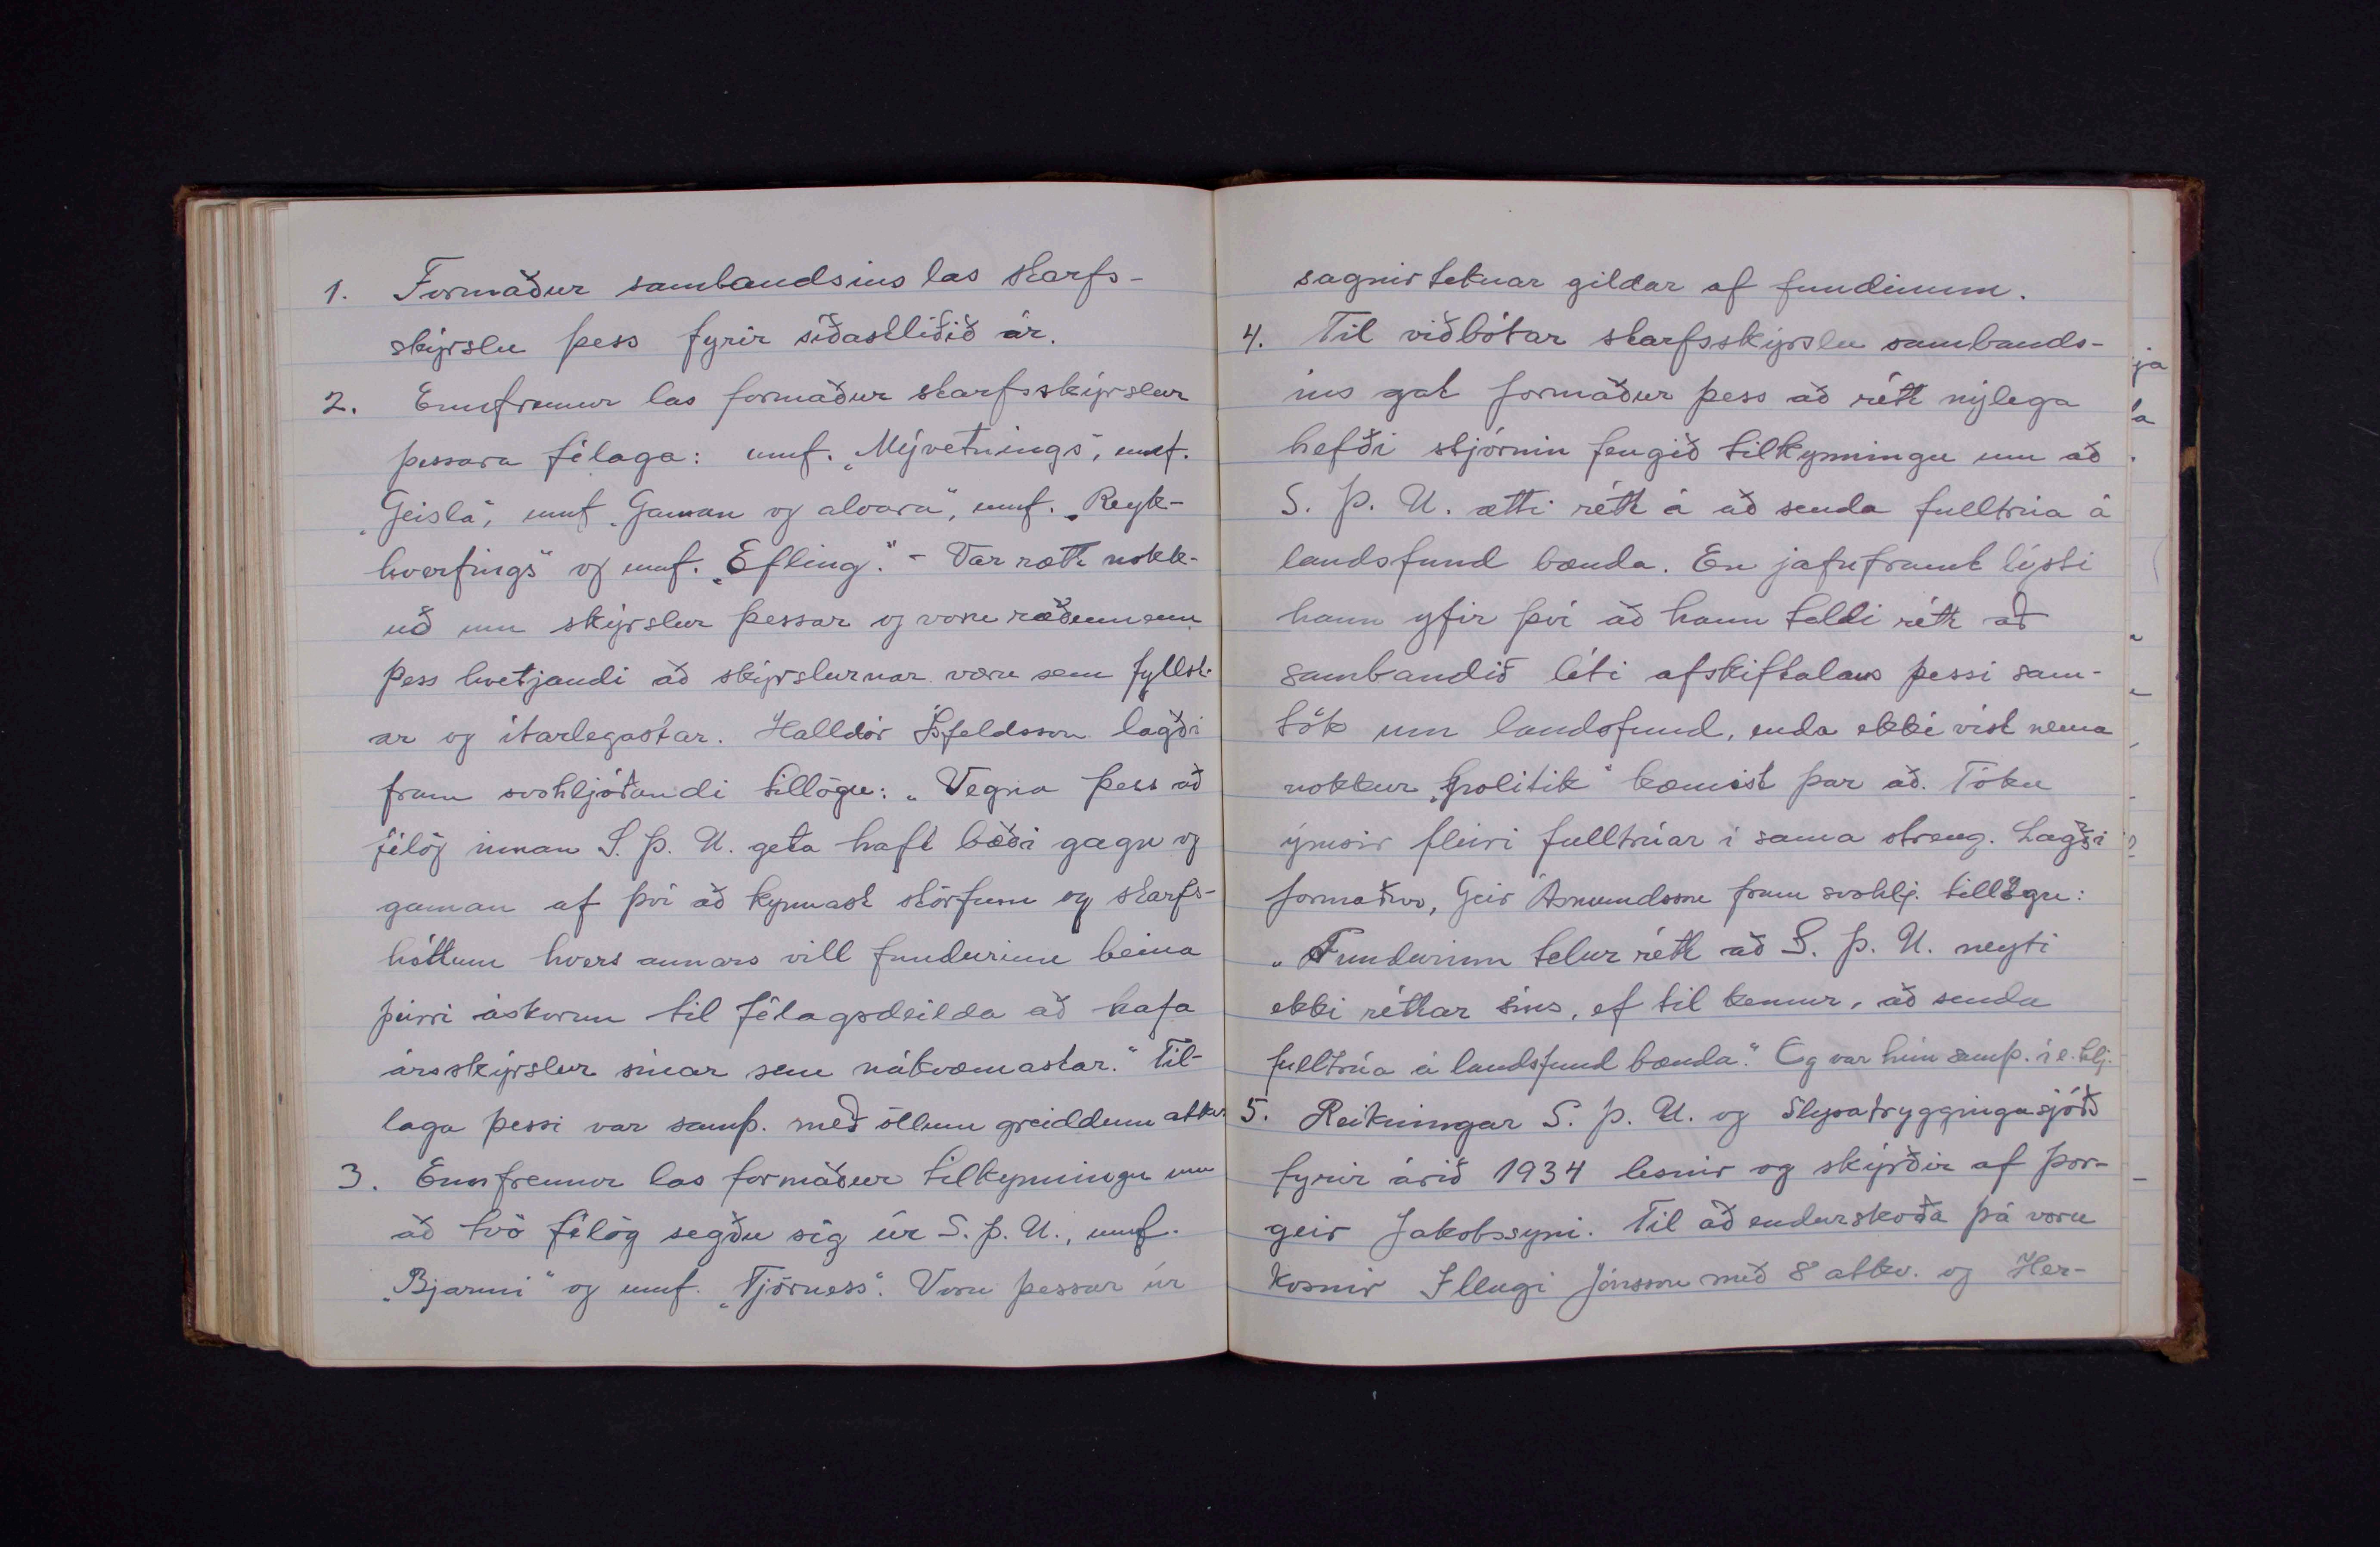 1. Formaður sambandsins las starfs-
skýrslu þess fyrir síðastliðið ár.
2. Ennfremur las formaður starfsskýrslur
þessara félaga: umf. „Mývetnings", umf.
„Geisla", umf „Gaman og alvara", umf. „Reyk-
hverfings" og umf. „Efling". - Var rætt nokk-
uð um skýrslur þessar og voru ræðumenn
þess hvetjandi að skýrslurnar væru sem fyllst-
ar og ítarlegastar. Halldór Ísfeldsson lagði
fram svohljóðandi tillögu: „Vegna þess að
félög innan S. Þ. U. geta haft bæði gagn og
gaman af því að kynnast störfum og starfs-
háttum hvers annars vill fundurinn beina
þeirri áskorun til félagsdeilda að hafa
ársskýrslur sínar sem nákvæmastar." Til-
laga þessi var samþ. með öllum greiddum atkv
3. Ennfremur las formaður tilkynningu um
að tvö félög segðu sig úr S. Þ. U., umf.
„Bjarmi" og umf. „Tjörness". Voru þessar úr
sagnir teknar gildar af fundinum.
4. Til viðbótar starfsskýrslu sambands-
ins gat formaður þess að rétt nýlega
hefði stjórnin fengið tilkynningu um að
S. Þ. U. ætti rétt á að senda fulltrúa á
landsfund bænda. En jafnframt lýsti
hann yfir því að hann teldi rétt að
sambandið léti afskiftalaus þessi sam-
tök um landsfund, enda ekki víst nema
nokkur „politik" kæmist þar að. Tóku
ýmsir fleiri fulltrúar í sama streng. Lagði
formaður, Geir Ásmundsson fram svohlj. tillögu:
„Fundurinn telur rétt að S. Þ. U. neyti
ekki réttar síns, ef til kemur, að senda
fulltrúa á landsfund bænda." Og var hún samþ. í e. hlj.
5. Reikningar S. Þ. U. og Slysatryggingasjóðs
fyrir árið 1934 lesnir og skýrðir af Þor-
geir Jakobssyni. Til að endurskoða þá voru
kosnir Illugi Jónsson með 8 atkv. og Her-